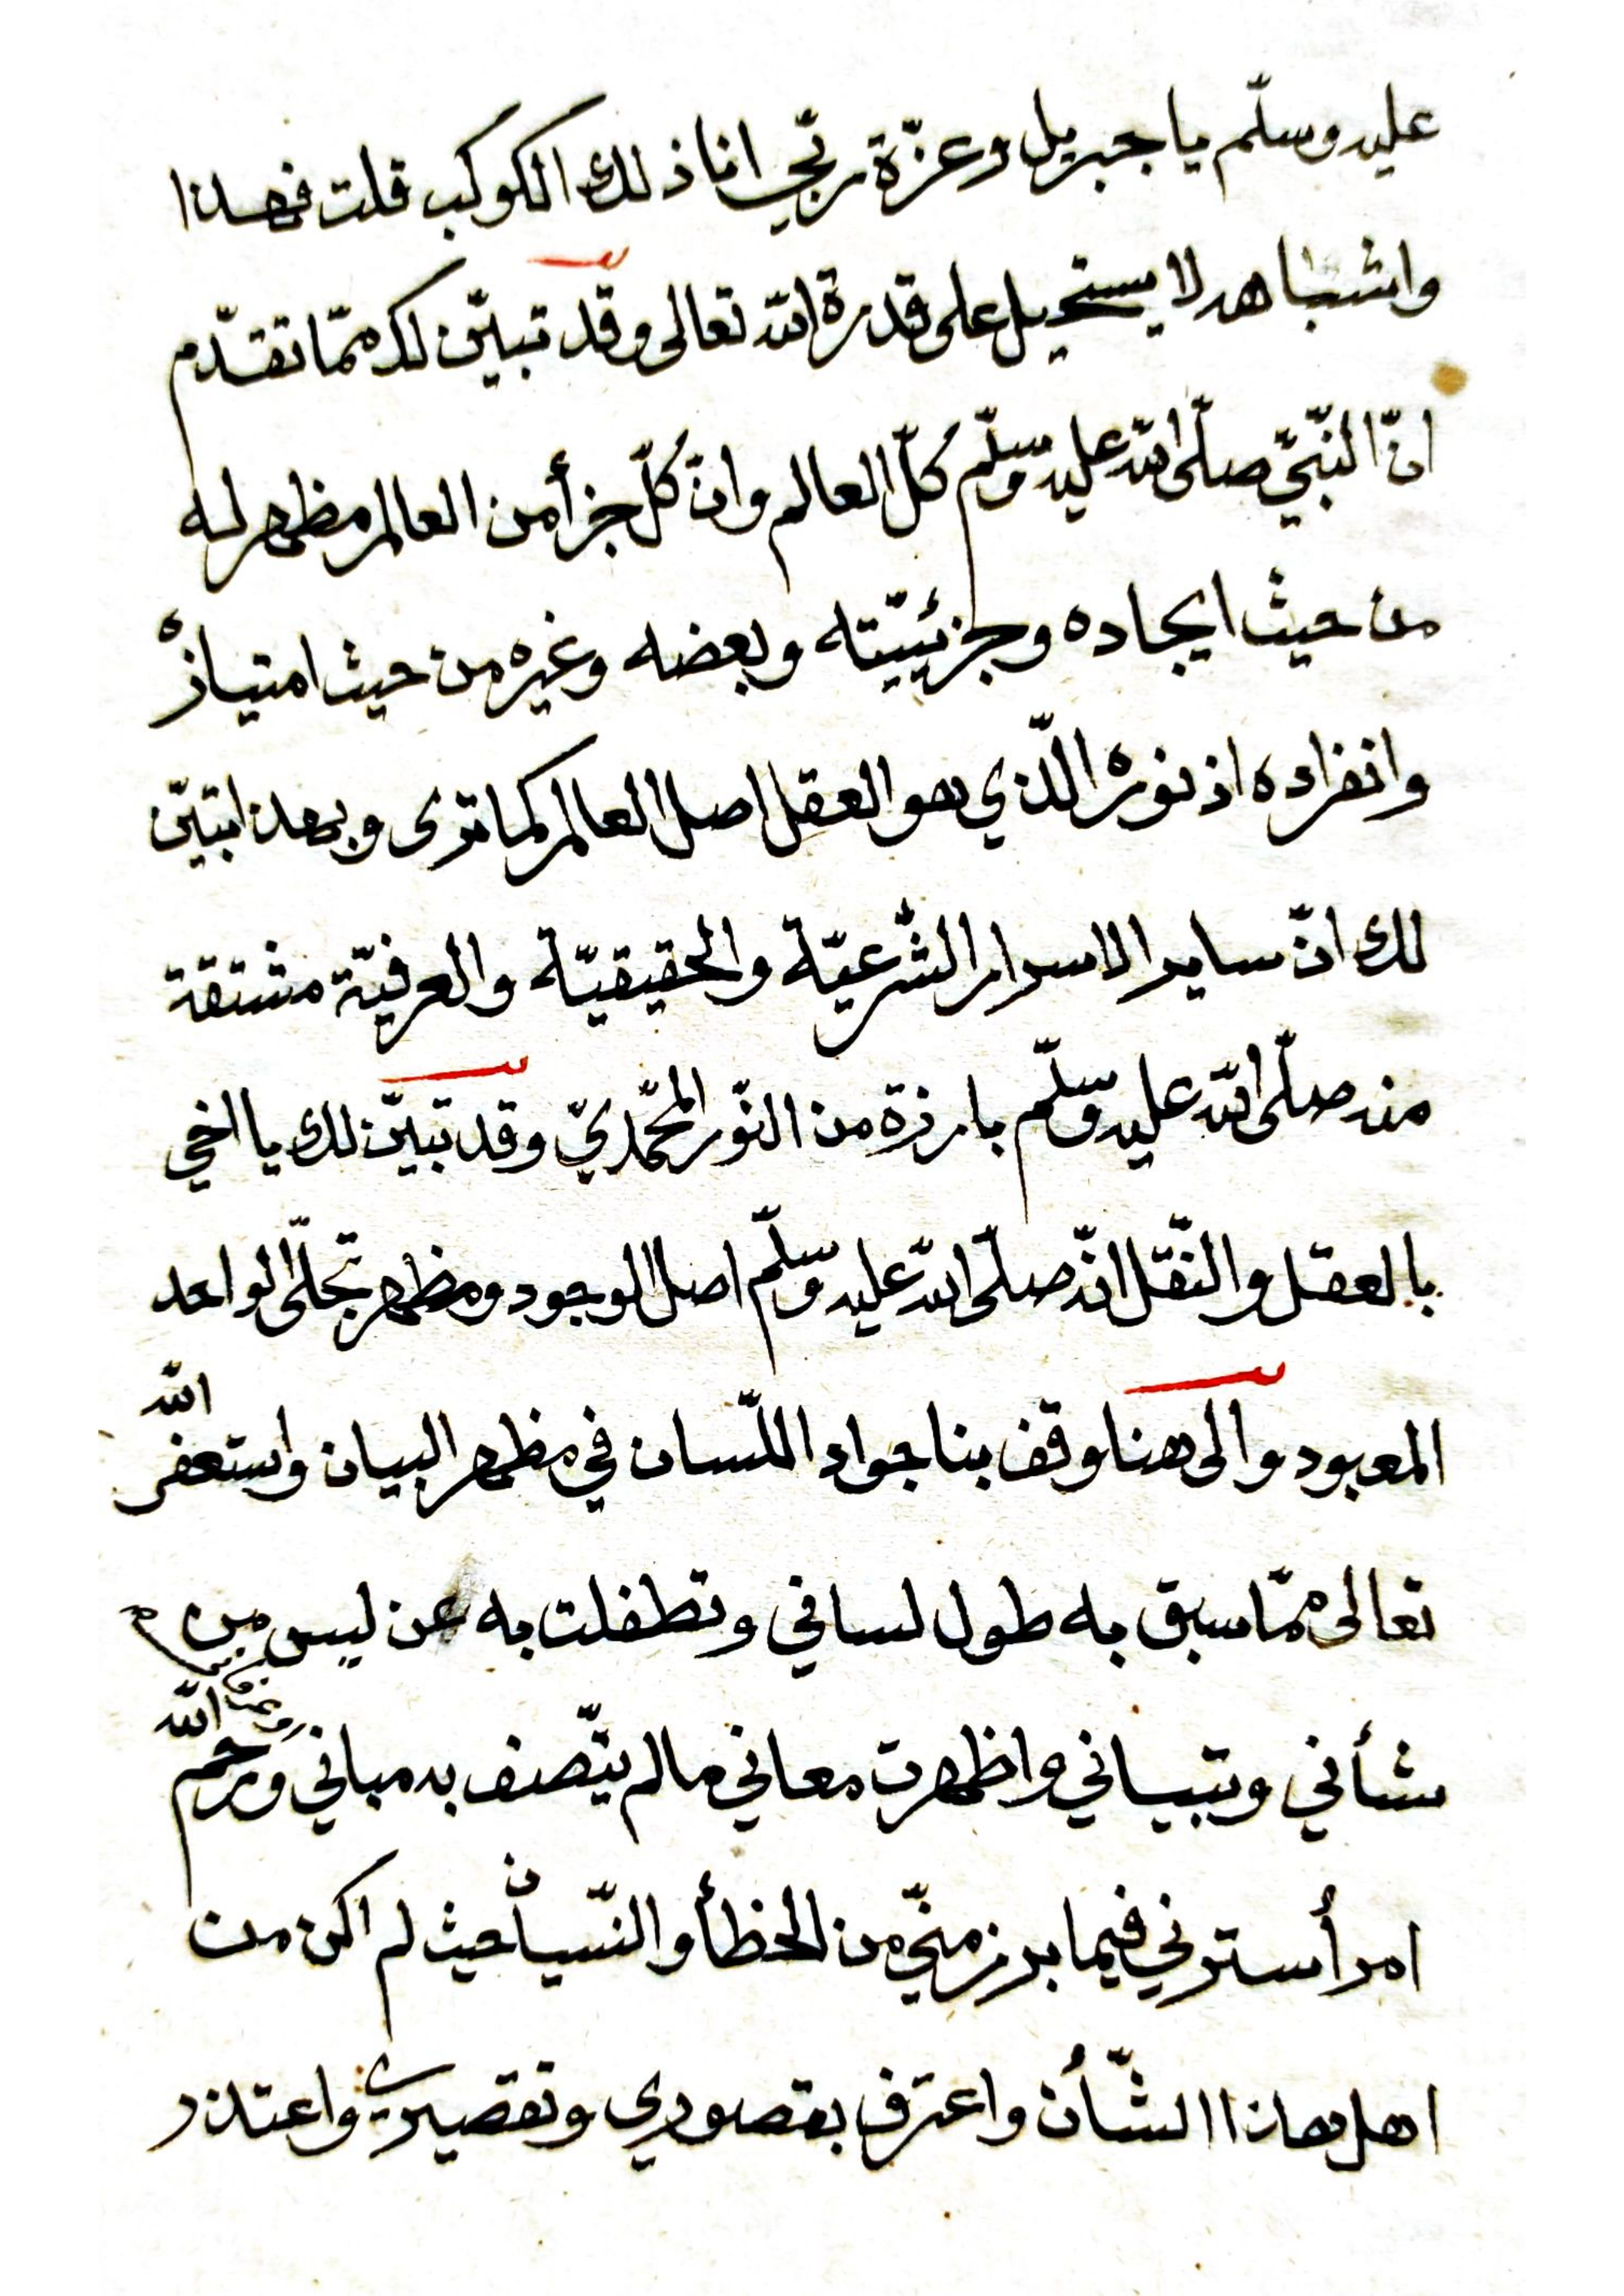 عليه وسلّم يا جبريل وعزّة ربّي انا ذلك الكوكب قلت فهذا
واشباهه لا يستحيل على قدرة الله تعالى وقد تبيّن لك ممّا تقدّم
انّ النّبيّ صلّى الله عليه وسلّم كُلّ العالم وانّ كُلّ جزأ من العالم مظهر له
من حيث ايجاده وجزئيّته وبعضه وغيره من حيث امتيازه
وانفراده اذ نوره الّذي هو العقل اصل العالم كما ترى وبهذا تبيّن
لك انّ ساير الاسرار الشّرعيّة والحقيقيّة والعرفيّة مشتقة
منه صلّى الله عليه وسلّم بارزة من النّور المحمّديّ وقد تبيّن لك يا اخي
بالعقل والنّقل انّه صلّى الله عليه وسلّم اصل الوجود ومظهر تجلّى الواحد
المعبود والى هنا وقف بنا جواد اللّسان في مظهر البيان واستغفر الله
تعالى ممّا سبق به طول لساني وتطفلت به عن ليس من
شأني وتبياني واظهرت معاني ما لم يتّصف به مباني ورحم الله
امرأ سترني فيما برز منّي من الخطأ والنّسيان حيث لم اكن من
اهل هاذا الشّأن واعترف بقصوري وتقصيري واعتذر